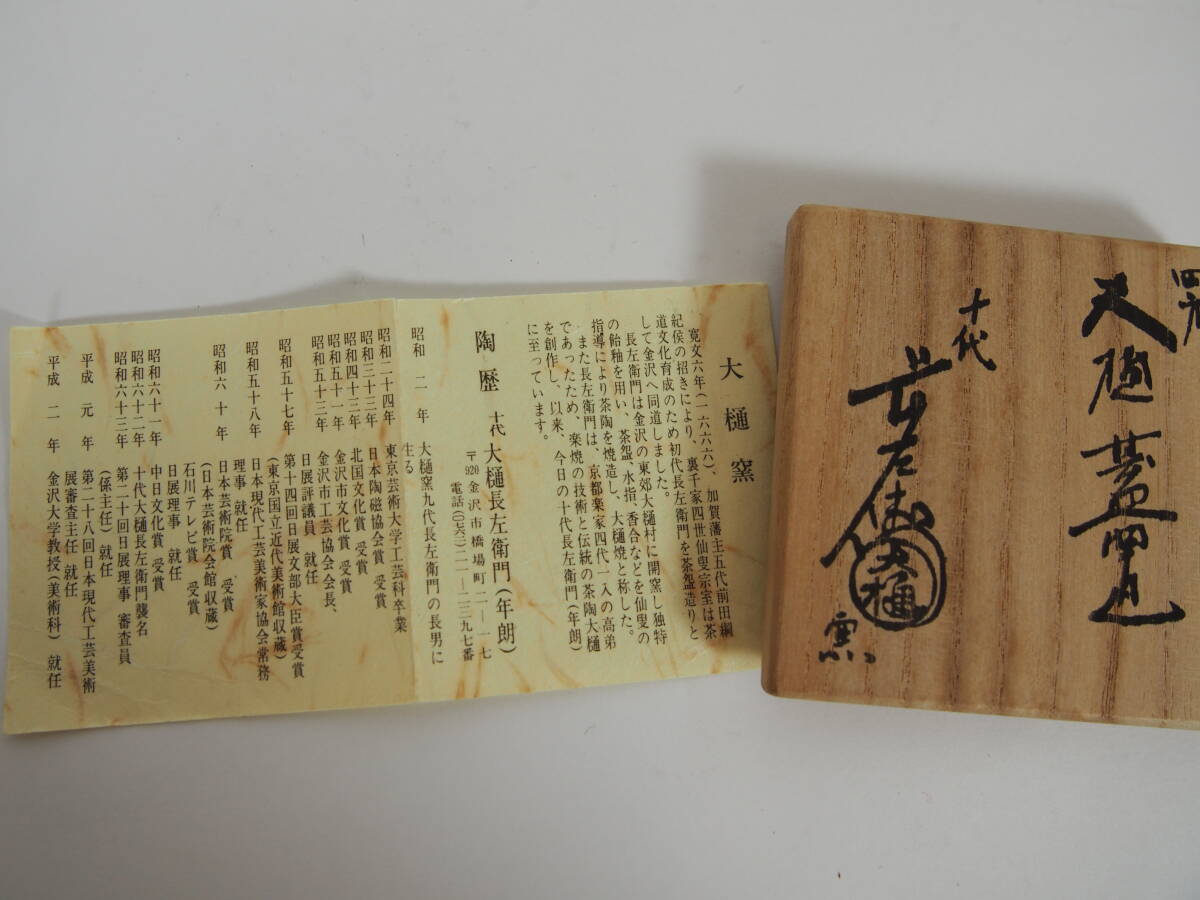 大樋窯
寛文六年(一六六六)、加賀藩主五代前田綱
紀侯の招きにより、裏千家四世仙叟宗室は茶
道文化育成のため初代長左衛門を茶盌造りと
して金沢へ同道しました。
長左衛門は金沢の東郊大樋村に開窯し独特
の飴釉を用い、茶盌、水指、香合などを仙叟の
指導により茶陶を焼造し、大樋焼と称した。
また長左衛門は、京都楽家四代一入の高弟
であったため、楽焼の技術と伝統の茶陶大樋
を創作し、以来、今日の十代長左衛門(年朗)
に至っています。
陶歴 十代 大樋長左衛門(年朗)
〒920 金沢市橋場町二―一七
電話(〇七六二)二一―二三九七番
昭和二年 大樋窯九代長左衛門の長男に
生る
昭和二十四年 東京芸術大学工芸科卒業
昭和三十三年 日本陶磁協会賞 受賞
昭和四十三年 北国文化賞 受賞
昭和五十一年 金沢市文化賞 受賞
昭和五十三年 金沢市工芸協会会長、
日展評議員 就任
昭和五十七年 第十四回日展文部大臣賞受賞
(東京国立近代美術館収蔵)
昭和五十八年 日本現代工芸美術家協会常務
理事 就任
昭和六十年 日本芸術院賞 受賞
(日本芸術院会館収蔵)
石川テレビ賞 受賞
日展理事 就任
昭和六十一年 中日文化賞 受賞
昭和六十二年 十代大樋長左衛門襲名
昭和六十三年 第二十回日展理事 審査員
(係主任) 就任
平成元年 第二十八回日本現代工芸美術
展審査主任 就任
平成二年 金沢大学教授(美術科) 就任
大樋 蓋置
十代
長左衛門
大樋
窯